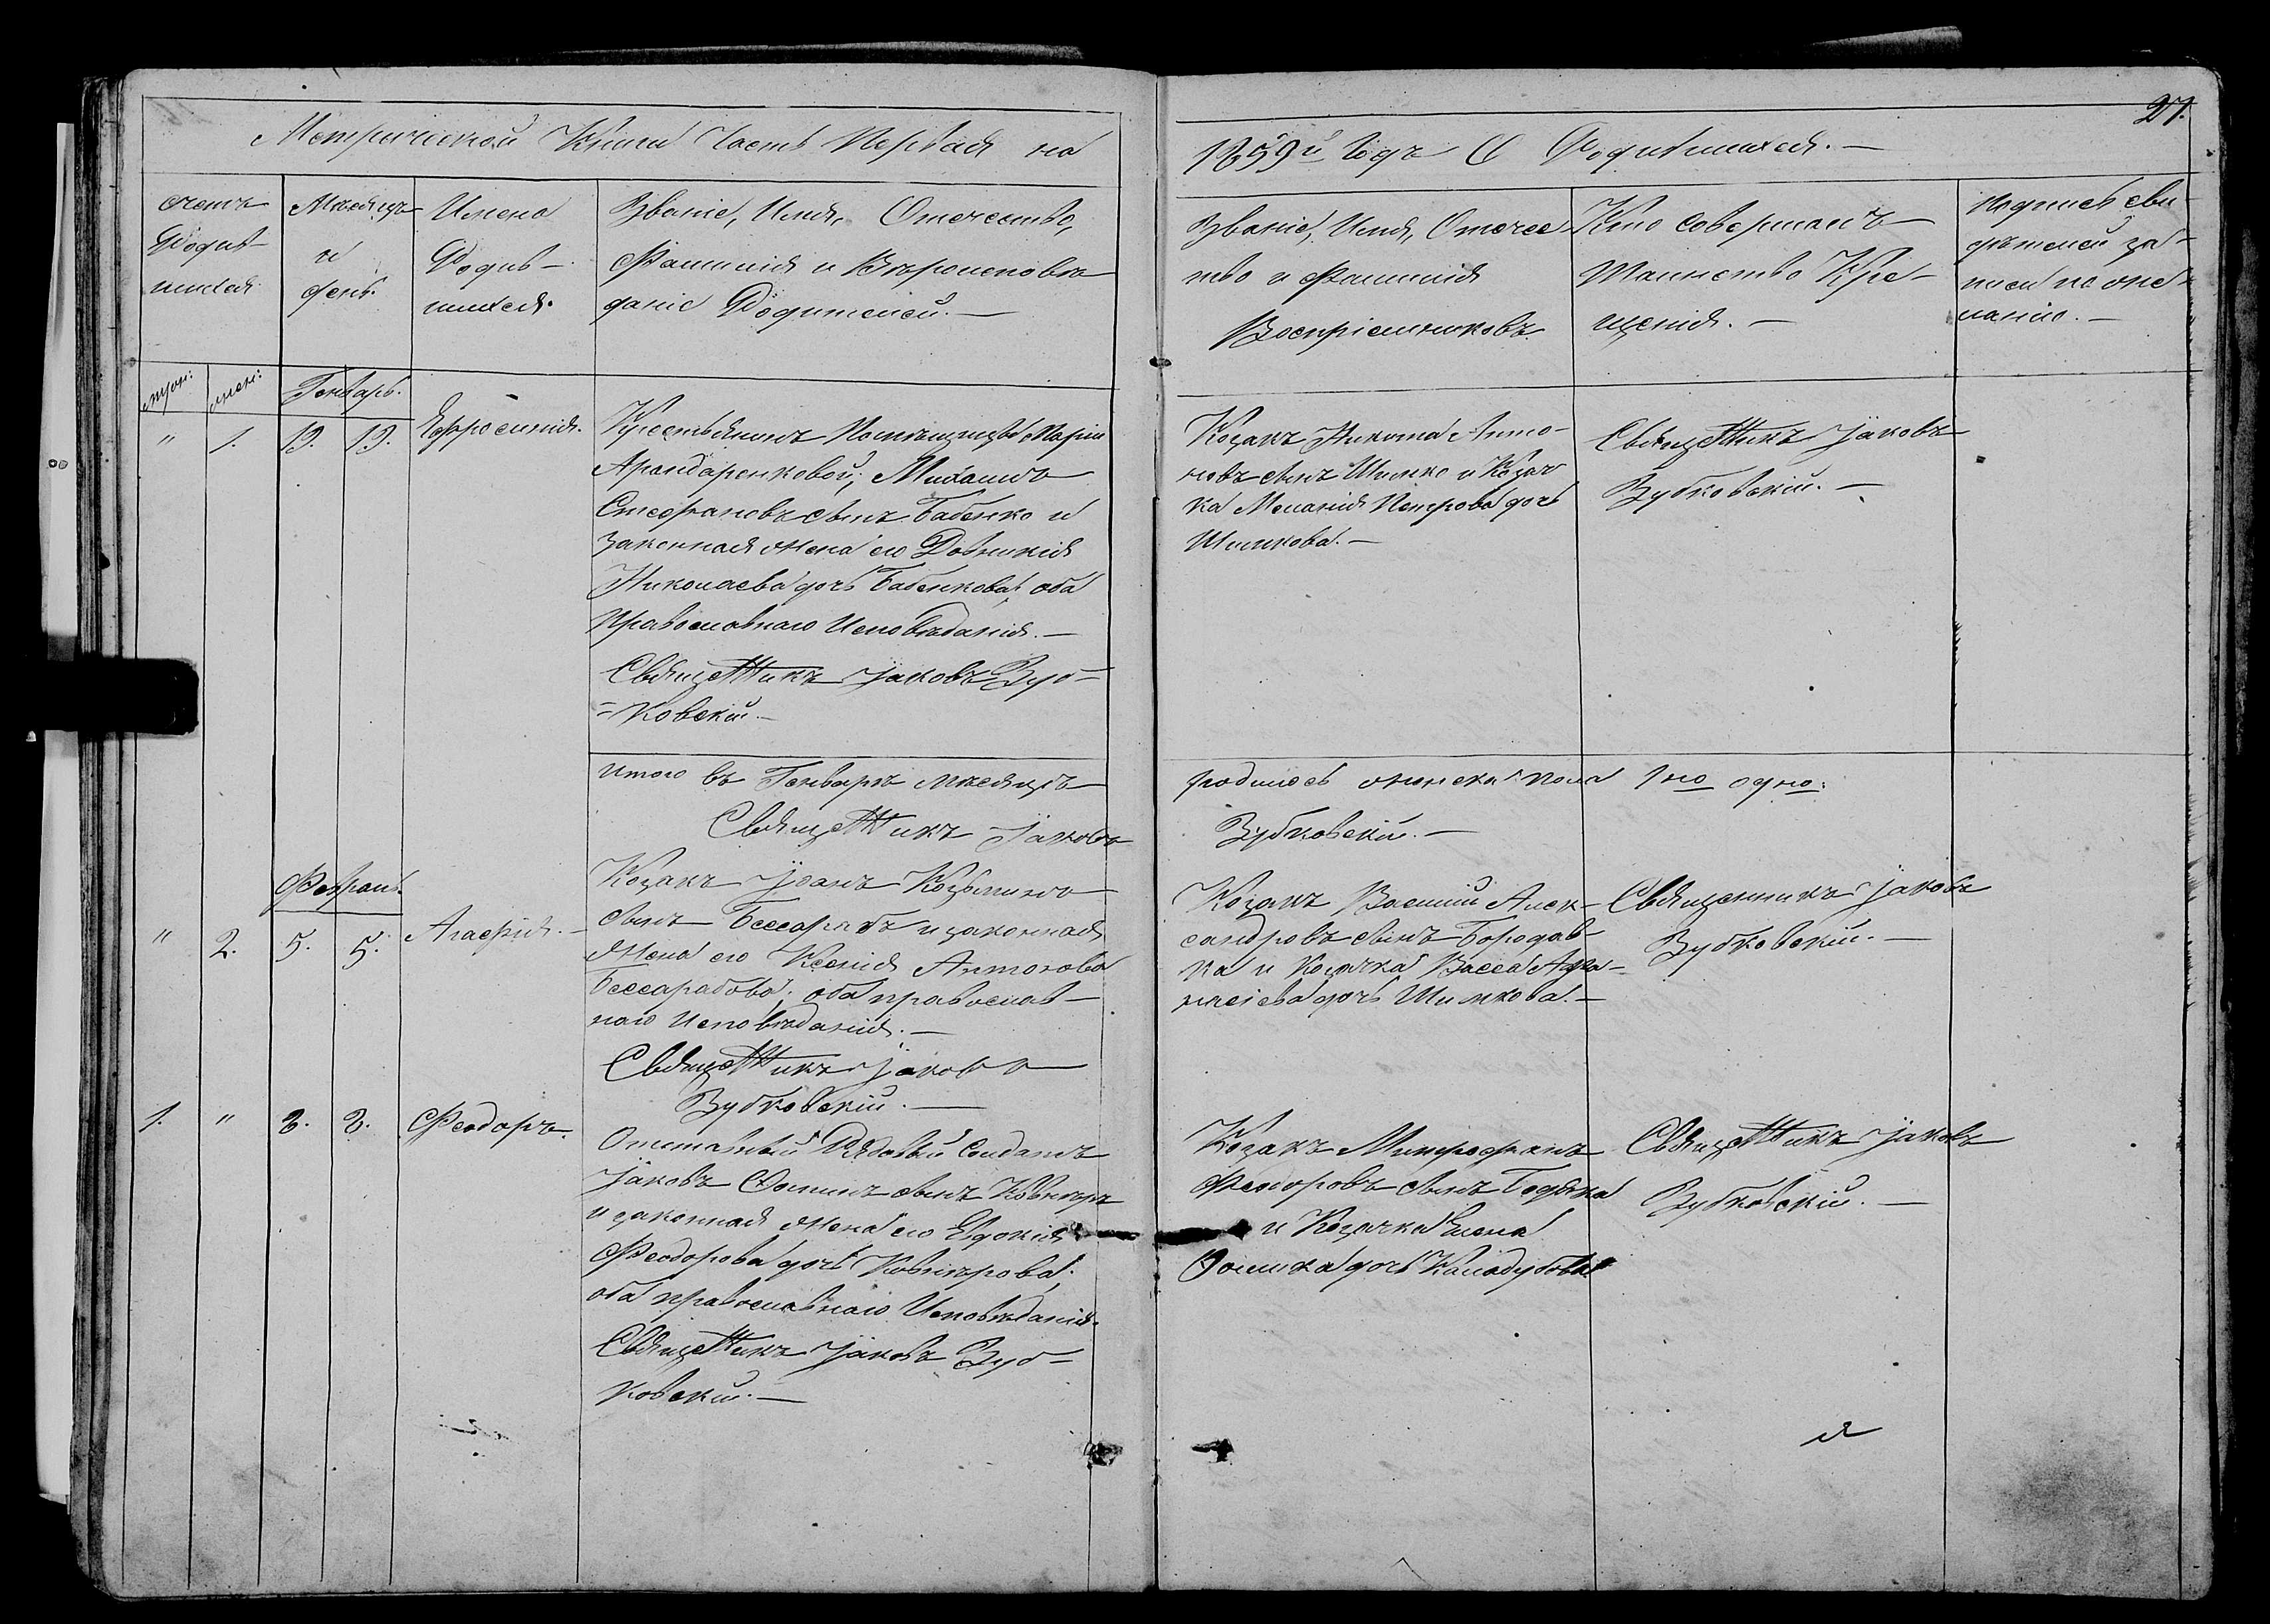 Метрической Книги Часть Первая на
1859й Годъ О Родившихся. —
27.
счетъ
Родив-
шихся
Мѣсяцъ
и
день.
Имена
Родив-
шихся.
Званіе, Имя, Отечество,
Фамилія и Вѣроисповѣ
даніе Родителей. —
Званіе, Имя, Отечес
тво и Фамилія
Воспріемниковъ.
Кто совершалъ
Таинство Кре-
щенія. —
Подпись сви-
дѣтелей за-
писи по же-
ланію. —
муж: жен: Генварь.
" 1. 19. 19. Ефросинія.
Крестьянинъ Помѣщицы Маріи
Арандаренковой, Михаилъ
Стефановъ сынъ Бабенко и
законная жена его Довникія
Николаева дочь Бабенкова, оба
Православнаго Исповѣданія. —
СвященНикъ Іаковъ Зуб-
=ковскій. —
Козакъ Никита Анто-
новъ сынъ Шимко и Козач
ка Меланія Петрова дочь
Шимкова. —
СвященНикъ Іаковъ
Зубковскій. —
Итого въ Генварѣ мѣсяцѣ
родилось женска пола 1но одно:
СвященНикъ Іаковъ
Зубковскій. —
Февраль.
" 2. 5. 5. Агафія. —
Козакъ Іоанъ Козьминъ
сынъ Бессарабъ и законная
жена его Ксенія Антонова
Бессарабова, оба православ-
наго Исповѣданія. —
СвященНикъ Іаковъ
Зубковскій. —
Козакъ Василій Алек-
сандровъ сынъ Бородав
ка и Козачка Васса Афа-
насіева дочь Шимкова. —
Священникъ Іаковъ
Зубковскій. —
1. " 8. 8. Феодоръ.
Отставный Рядовый Солдатъ
Іаковъ Фоминъ сынъ
и законная жена его Евдокія
Феодорова дочь
оба православнаго Исповѣданія.
СвященНикъ Іаковъ Зуб-
ковскій. —
Козакъ Митрофанъ
Феодоровъ сынъ
и Козачка Елена
дочь
СвященНикъ Іаковъ
Зубковскій. —